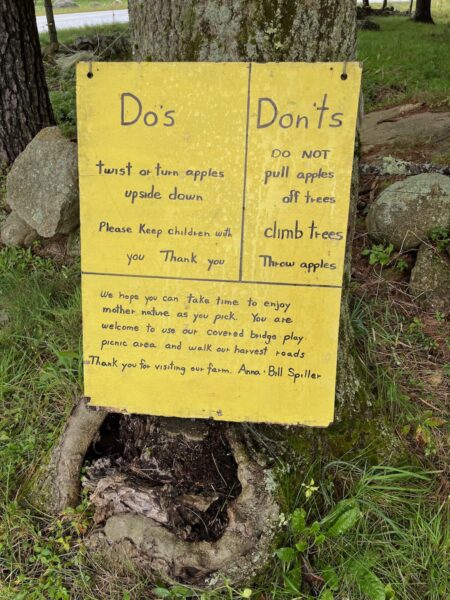 Do's
twist or turn apples
upside down
Please Keep children with
you Thank you
Don'ts
DO NOT
pull apples
off trees
climb trees
Throw apples
We hope you can take time to enjoy
mother nature as you pick. You are
welcome to use our covered bridge play
picnic area and walk our harvest roads
Thank you for visiting our farm. Anna · Bill Spiller